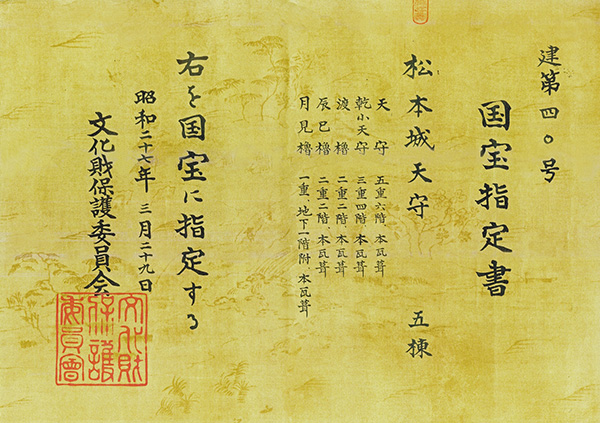 建第四〇号
国宝指定書
松本城天守 五棟
天守 五重六階、本瓦葺
乾小天守 三重四階、本瓦葺
渡櫓 二重二階、本瓦葺
辰巳櫓 二重二階、本瓦葺
月見櫓 一重、地下一階附、本瓦葺、
右を国宝に指定する
昭和二十七年三月二十九日
文化財保護委員会
文化財
保護
委員會